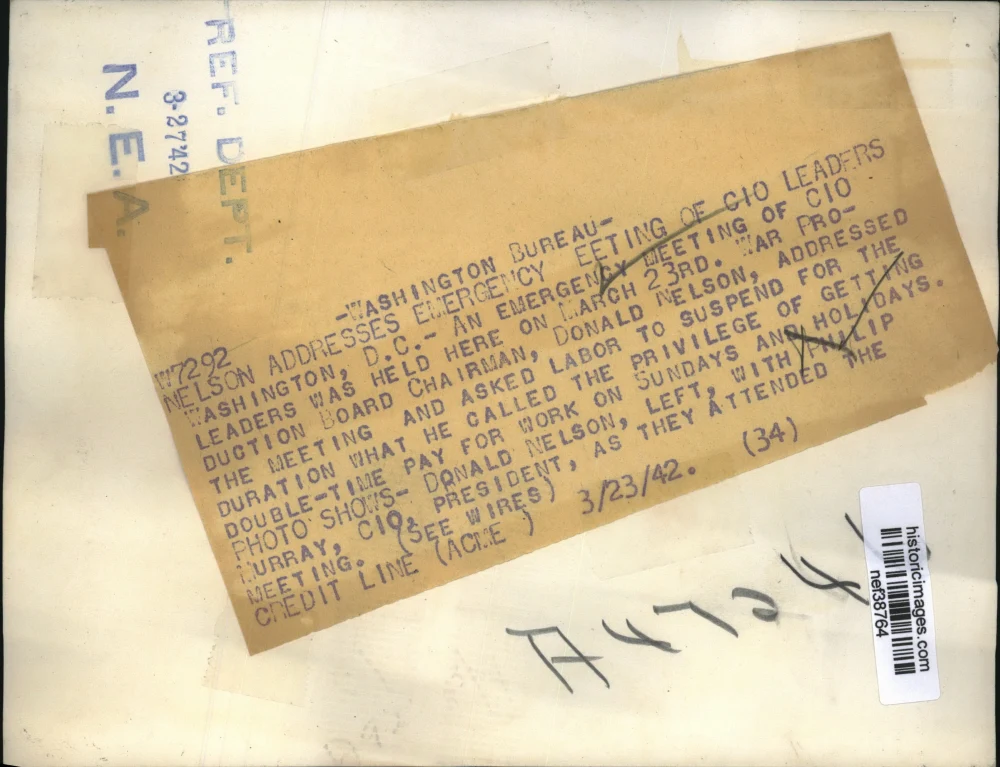 REF. DEPT.
3-2742
N.E.A.
W7292
-WASHINGTON BUREAU-
NELSON ADDRESSES EMERGENCY EETING OF CIO LEADERS
WASHINGTON, D.C.- AN EMERGENCY MEETING OF CIO
LEADERS WAS HELD HERE ON MARCH 23RD. WAR PRO-
DUCTION BOARD CHAIRMAN, DONALD NELSON, ADDRESSED
THE MEETING AND ASKED LABOR TO SUSPEND FOR THE
DURATION WHAT HE CALLED THE PRIVILEGE OF GETTING
DOUBLE-TIME PAY FOR WORK ON SUNDAYS AND HOLIDAYS.
PHOTO SHOWS- DONALD NELSON, LEFT, WITH PHILIP
MURRAY, CIO, PRESIDENT, AS THEY ATTENDED THE
MEETING. (SEE WIRES)
CREDIT LINE (ACME ) 3/23/42. (34)
historicimages.com
nef38764